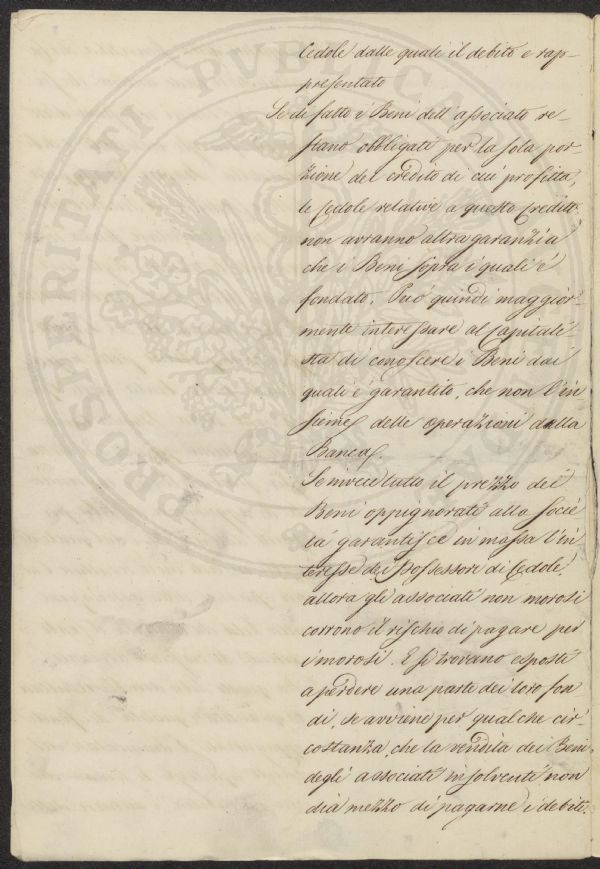 Cedole dalle quali il debito e rap-
presentato
Se di fatto i Beni dell'associato re-
stano obbligati per la sola por-
zione del credito di cui profitta,
le Cedole relative a questo Credito
non avranno altra garanzia
che i Beni sopra i quali é
fondato. Può quindi maggior-
mente interessare al Capitali-
sta di conoscere i Beni dai
quali é garantito, che non l'in
sieme delle operazioni della
Banca.
Se invece tutto il prezzo dei
Beni oppignorati alla Socie
tà garantisce in massa l'in
teresse dei Possessori di Cedole,
allora gli associati non morosi
corrono il rischio di pagare per
i morosi. E si trovano esposti
a perdere una parte dei loro fon
di, se avviene per qualche cir-
costanza, che la vendita dei Beni
degli associati insolventi non
dia mezzo di pagarne i debiti.
PROSPERITATI PVBLICAE